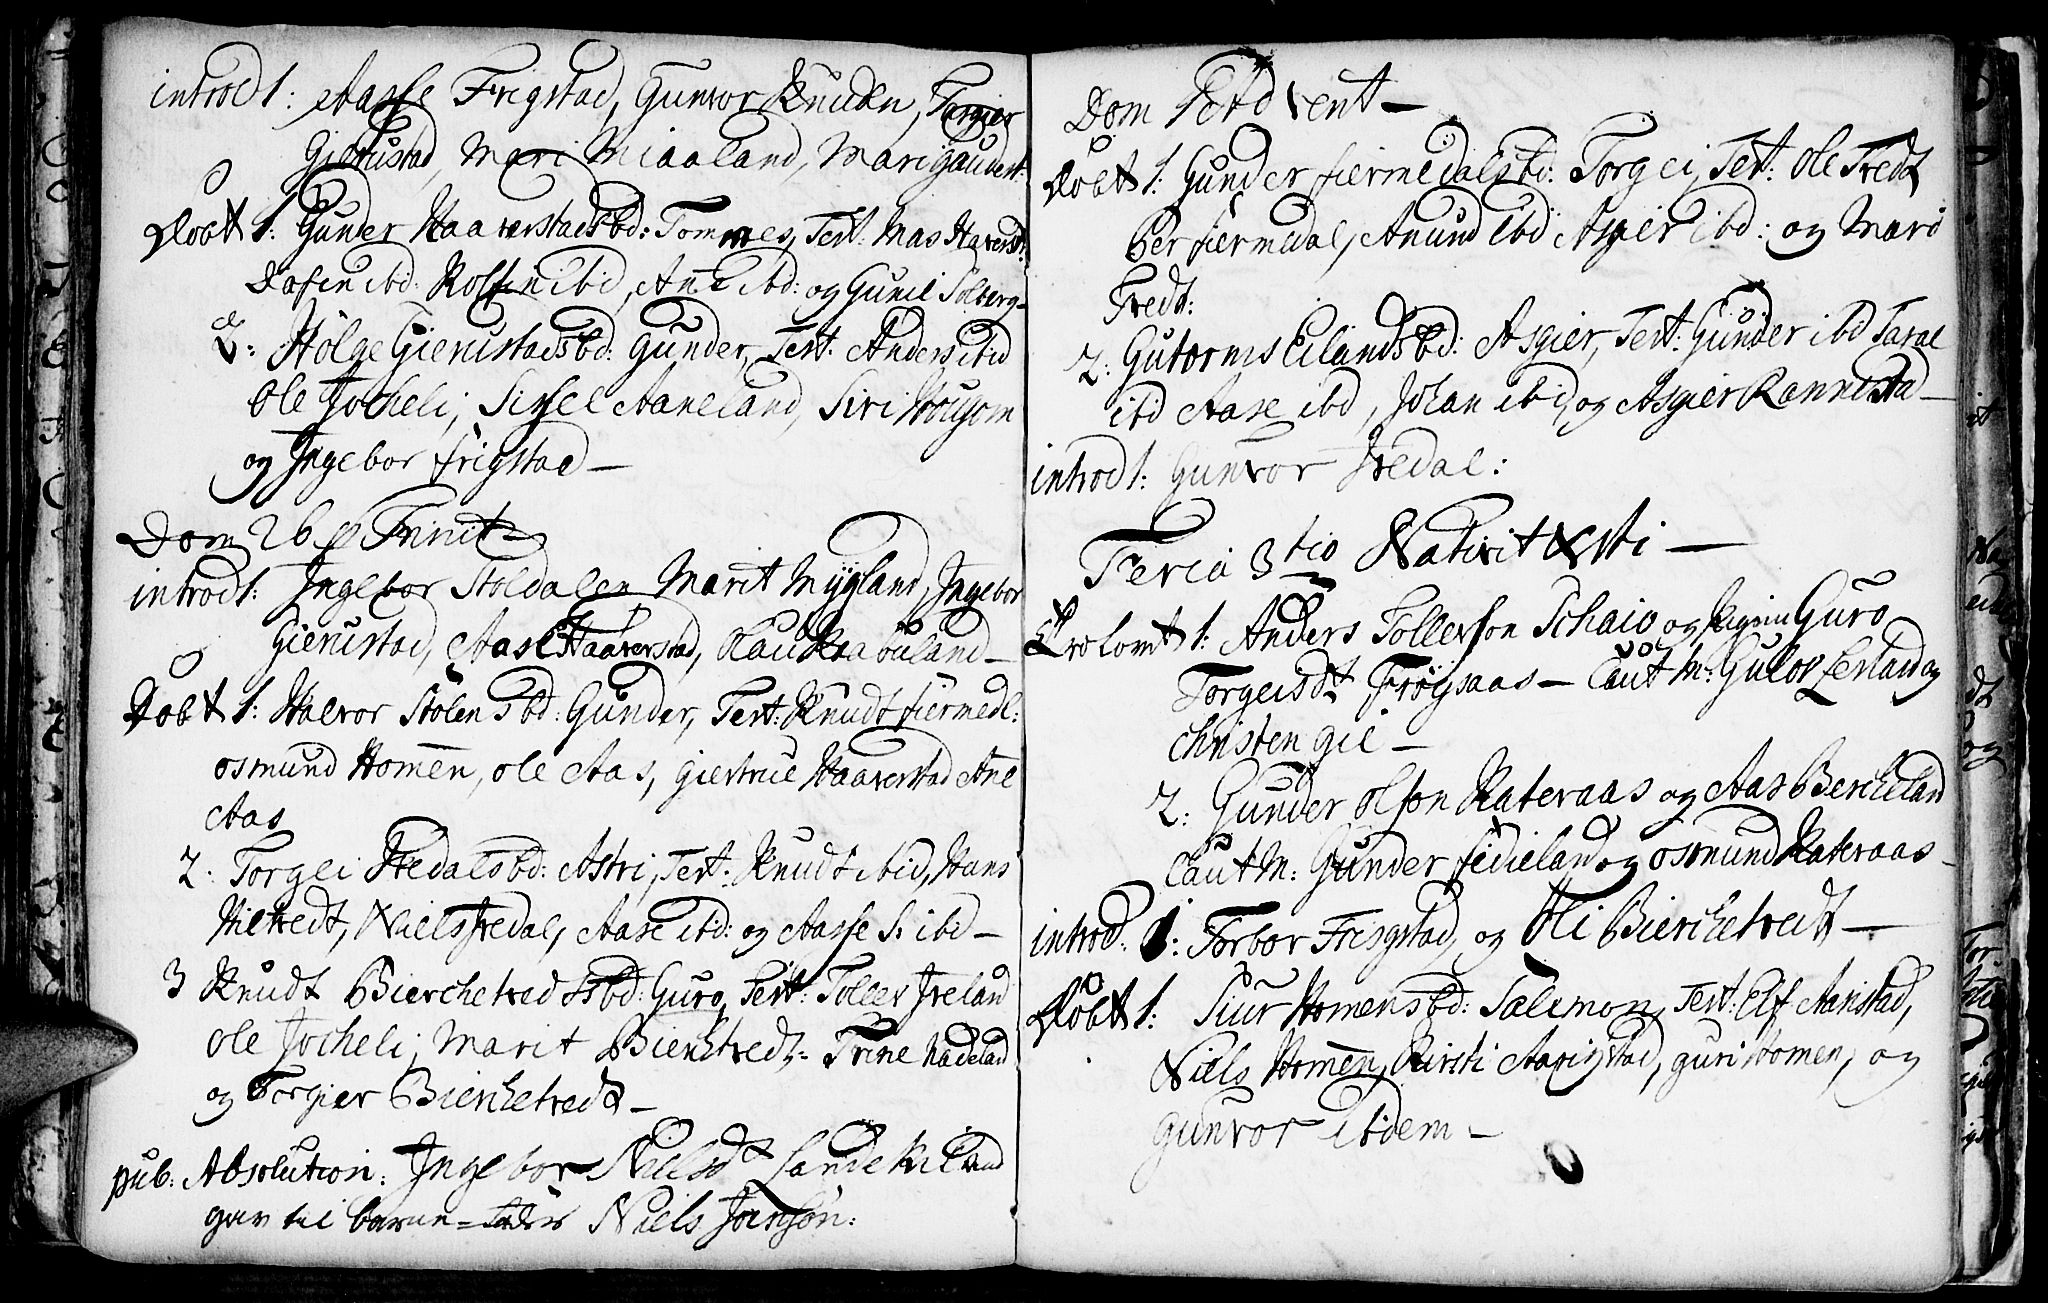 introd 1: Aasse Frigstad, Gunvor Knuden, Torgier
Gierustad, Mari Miaaland, Mari Gaudest:
Dobt 1: Gunder Haaverstadsbd: Tommes, Test: Mas Haverst:
Dafin ibid: Rolfen ibid, Ane ibd: og Gunil Solberg
2: Holge Gierustadsbd: Gunder, Test: Anders ibid
Ole Jocheli, Sissel Aaneland, Siri Hougom
og Ingebor Frigstad —
Dom 26 p Trinit
introd 1: Ingebor Stoldalen Marit Mygland, Ingebor
Gierustad, Aase Haaverstad, Olau Krabuland —
Dobt 1: Halvor Stolensbd: Gunder, Test: Knudt fiermedl:
Osmund Homen, Ole Aas, Giertrue Haaverstad Ane
Aas
2: Torgei Tredalsbd: Astri, Test: Knudt ibid, Hans
Hiltredt, Niels Tredal, Aase ibd: og Aasse S: ibd —
3 Knudt Bierchetredtsbd: Guro, Test: Toller Ireland
Ole Jocheli, Marit Bierchtredt, Trine Hadeland
og Torgier Bierchetredt —
pub: Absolution: Ingebor Nielsdt Landekiland
gav til barne=fader Niels Jonson:
Dom 1 Advent —
Dobt 1: Gunder fiermedalsbd: Torgei, Test: Ole Tredt
Ber fiermedal, Anund ibd Asgier ibd: og Mari
Tredt:
2: Gutorms Eilandsbd: Asgier, Test: Gunder ibd Taral
ibd Aase ibd, Johan ibd, og Asgier Rannestad —
introd 1: Gunvor Tredal:
Feria 3tio Nativit Xsti —
Trolovet 1: Anders Tollerson Schaio og pigen Guro
Torgeisdt Frøysaas — Caut m: Gulov Lerland og
Christen Gil —
2: Gunder Olson Kateraas og Aas Bercheland
Caut m: Gunder fidieland og Osmund Kateraas —
introd: 1: Torbor Frigstad, og Oli Bierchetredt —
Dobt 1: Siur Homensbd: Salemon, Test: Elf Aanstad,
Niels Homen, Kirsti Aarigstad, guri Homen, og
Gunvor ibidem —